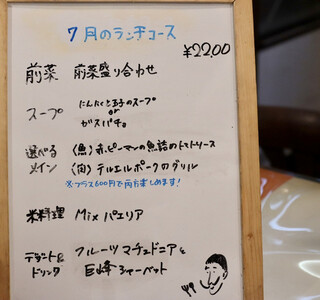 7月のランチコース
¥2200
前菜 前菜盛り合わせ
スープ にんにくと玉子のスープ
or
ガスパチョ
選べる メイン
〈魚〉赤ピーマンの魚詰のトマトソース
〈肉〉テルエルポークのグリル
※プラス600円で両方楽しめます!
米料理 Mixパエリア
デザート& ドリンク
フルーツマチェドニアと
巨峰シャーベット